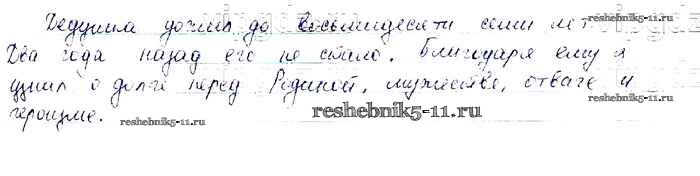 Дедушка дожил до восьмидесяти семи лет.
Два года назад его не стало. Благодаря ему я
узнал о долге перед Родиной, мужестве, отваге и
героизме.
reshebnik5-11.ru
reshebnik5-11.ru
reshebnik5-11.ru